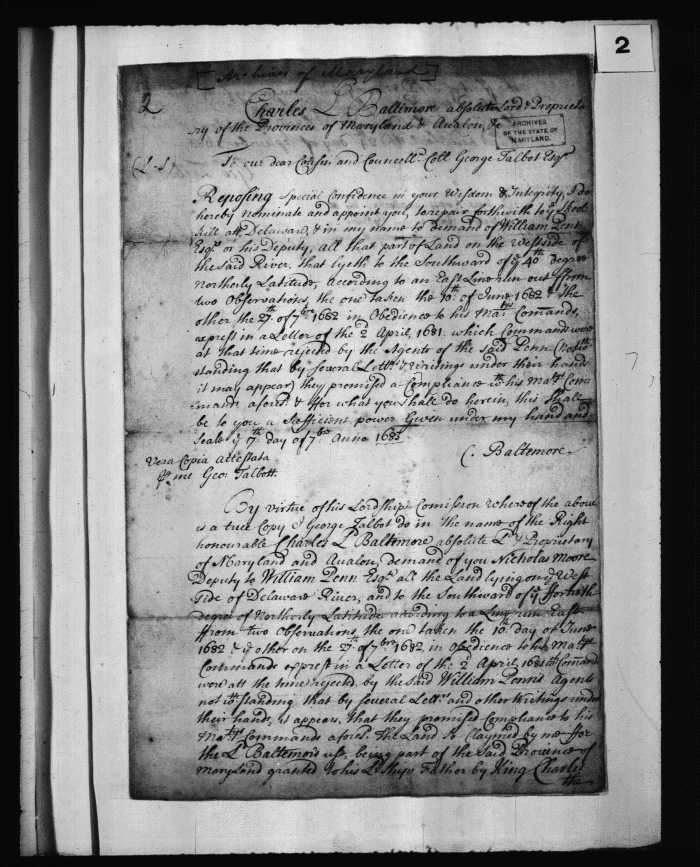 2
[Archives of Maryland]
2
Charles Ld Baltimore absolute Lord & Proprieta
ry of the Provinces of Maryland & Avalon, &c
ARCHIVES
OF THE STATE OF
MARYLAND.
(L.S) To our dear Cousin and Councellr. Coll George Talbot Esqr
Reposing Special Confidence in your Wisdom & Integrity, I do
hereby nominate and appoint you, to repair forthwith to ye Skool
kill att Delaware, & in my name to demand of William Penn
Esqr. or his Deputy, all that part of Land on the West side of
the Said River, that lyeth to the Southward of ye 40th degree
Northerly Latitude, according to an East Line run out ffrom
two Observations, the one taken the 10th. of June 1682 & the
other the 27th of 7br 1682 in Obedience to his Matys Comands,
exprest in a Letter of the 2d April, 1681. which Commands were
at that time rejected by the Agents of the said Penn (Notwth
standing that by several Lettrs & Writings under their hands
it may appear) they promised a Compliance wth his Matys Com
mands aforesd. & ffor what you shall do herein, this Shall
be to you a Sufficient power Given under my hand and
Seale ye 17th. day of 7br Anno 1683
Vera Copia Attestata C. Baltemore
pr me Geo: Talbott.
By virtue of his Lordships Comission whereof the above
is a true Copy I George Talbot do in the name of the Right
honourable Charles Ld Baltimore absolute Ld & Proprietary
of Maryland and Avalon, demand of you Nicholas Moore
Deputy to William Penn Esqr. all the Land lying on ye West
side of Delaware River, and to the Southward of ye ffortieth
degree of Northerly Latitude according to a Line run East
ffrom two Observations the one taken the 10th day of June
1682 & ye other on the 27th of 7br 1682 in obedience to his Matys
Commands exprest in a Letter of the 2 April 1681 wch Comands
were att the time rejected by the said William Penns Agents
not wthstanding that by several Lettrs and other Writings under
their hands, it appears, that they promised Compliance to his
Matys Commands aforesd. The Land so Claymed by me for
the Ld Baltemors use, being part of the Said Province of
Maryland granted to his Ldships Father by King Charles
the